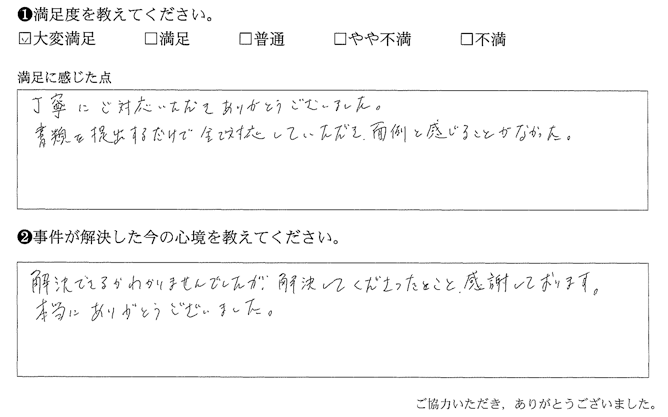 ❶満足度を教えてください。
☑大変満足 □満足 □普通 □やや不満 □不満
満足に感じた点
丁寧にご対応いただきありがとうございました。
書類を提出するだけで全て対応していただき、面倒と感じることがなかった。
❷事件が解決した今の心境を教えてください。
解決できるかわかりませんでしたが、解決してくださったこと、感謝しております。
本当にありがとうございました。
ご協力いただき、ありがとうございました。